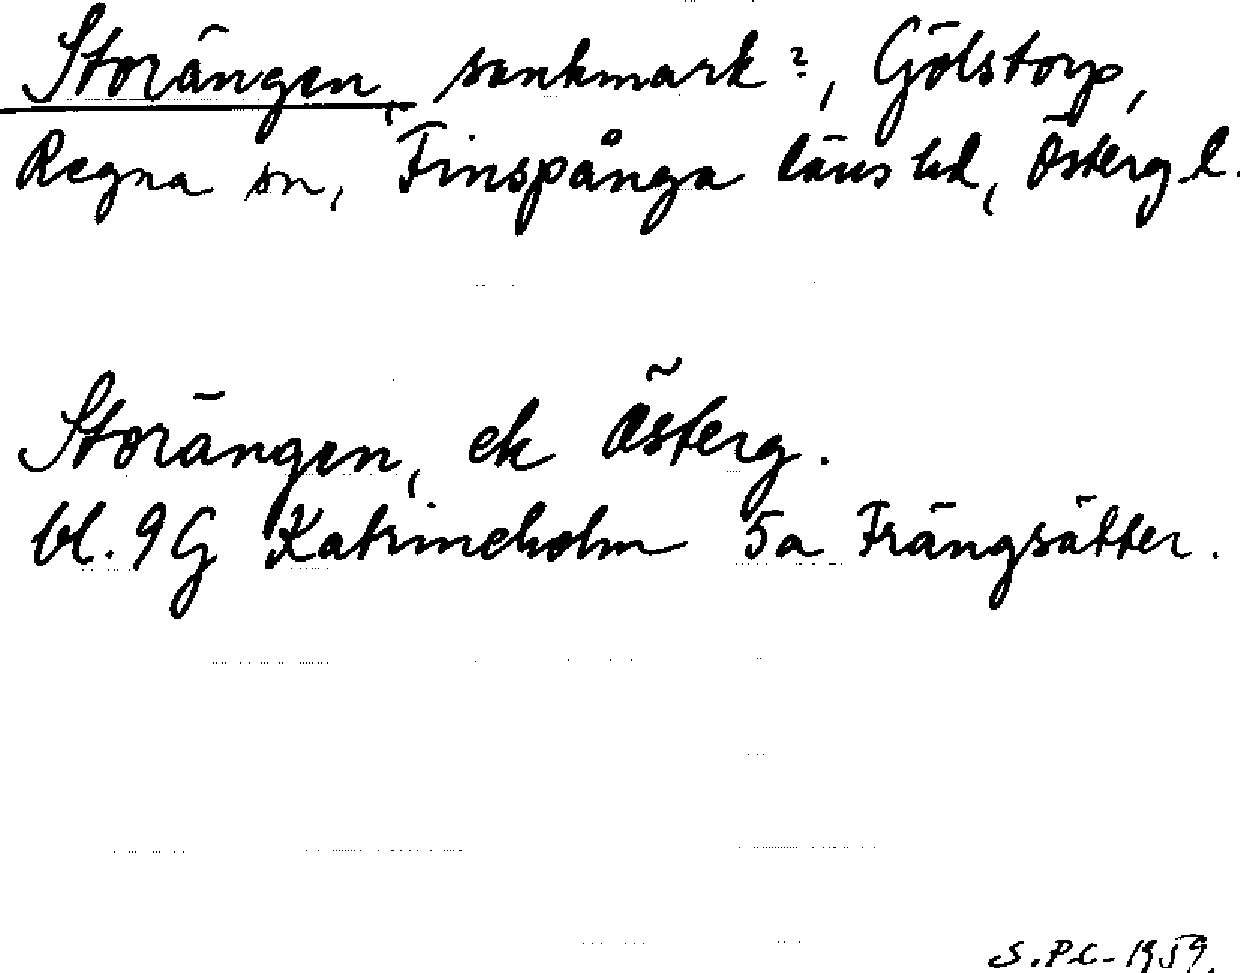 Storängen, sankmark?, Gölstorp,
Regna sn, Finspånga läns hd, Österg l.
Storängen, ek Österg.
bl. 9G Katrineholm 5a Frängsätter.
S.P.C- 1959.